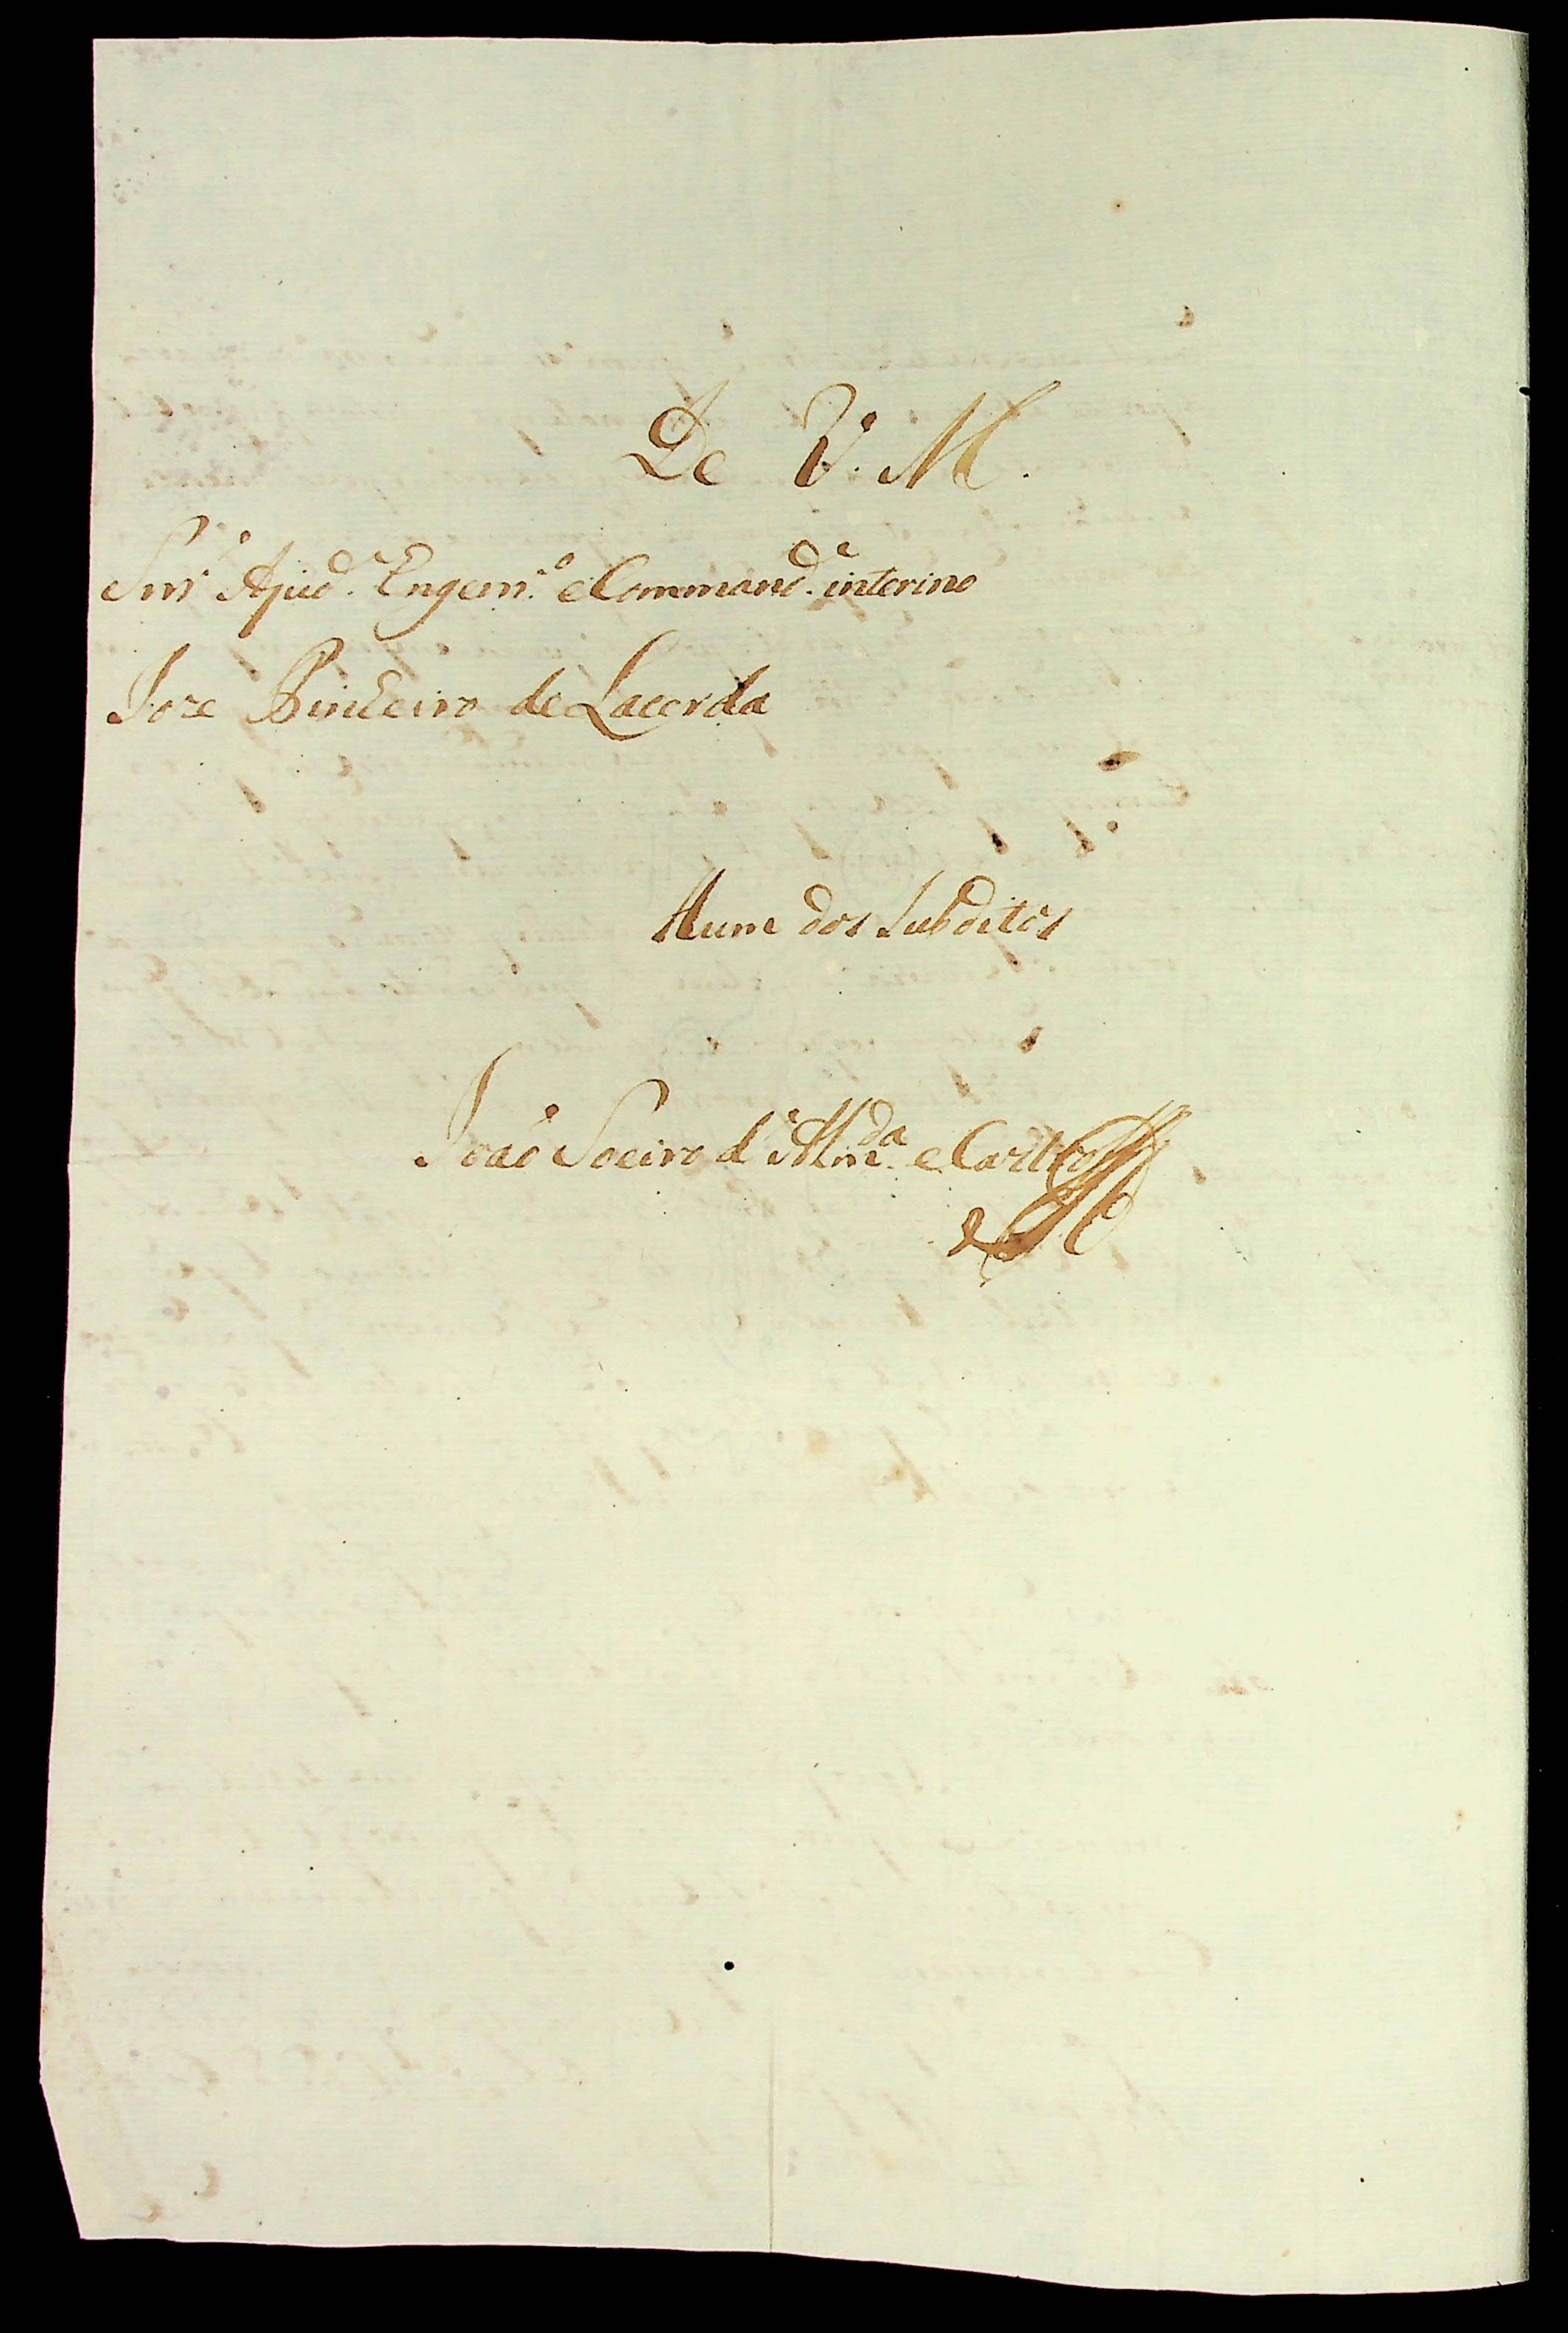 De V. M.
Snr. Ajud.e Engenr.o e Command.e interino
Joze Pinheiro de Lacerda
Hum dos Subditos
João Soeiro d'Alm.da e Castro